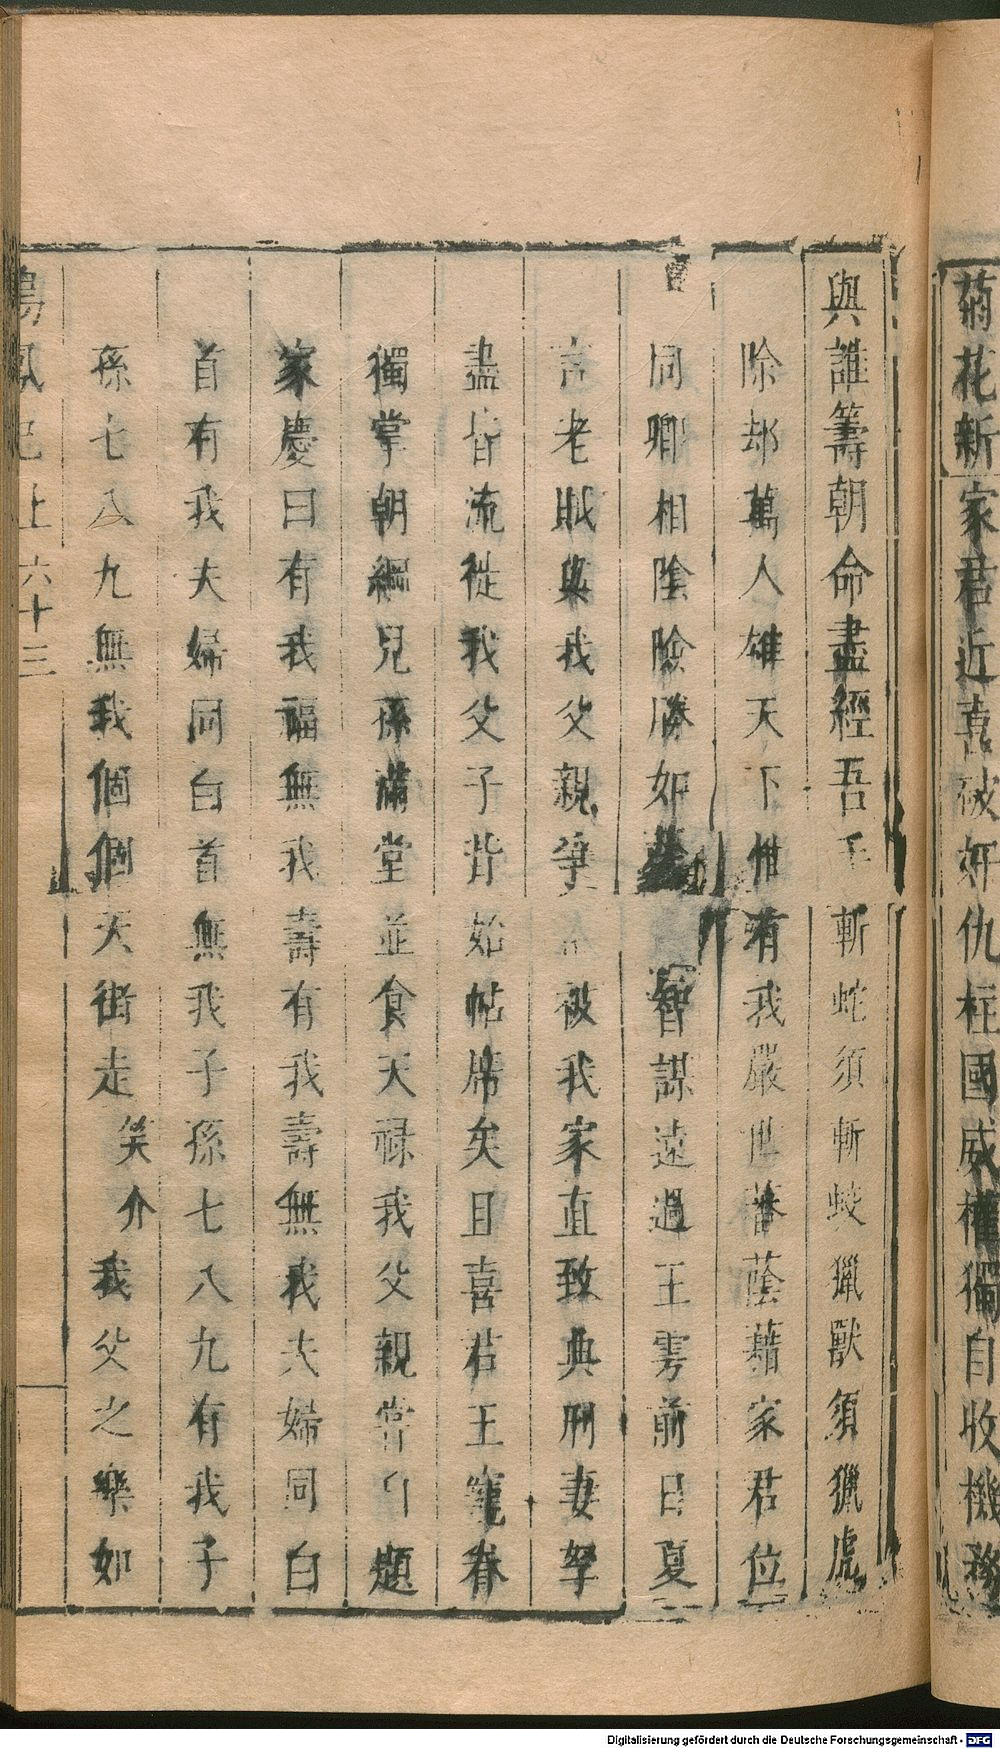 菊花新家君近喜破奸仇柱國威權獨自收機務
與誰籌朝命盡經吾手斬蛇須斬蛟獵獸須獵虎
除却萬人雄天下惟有我嚴世蕃蔭藉家君位
同卿相陰險勝如 智謀遠過王雱前日夏
言老賊與我父親爭 被我家直致典刑妻孥
盡皆流徙我父子背始帖席矣且喜君王寵眷
獨掌朝綱兒孫滿堂並食天祿我父親嘗自題
家慶曰有我福無我壽有我壽無我夫婦同白
首有我夫婦同白首無我子孫七八九有我子
孫七八九無我個個天街走笑介我父之樂如
鳴鳳記上六十三
Digitalisierung gefördert durch die Deutsche Forschungsgemeinschaft - DFG